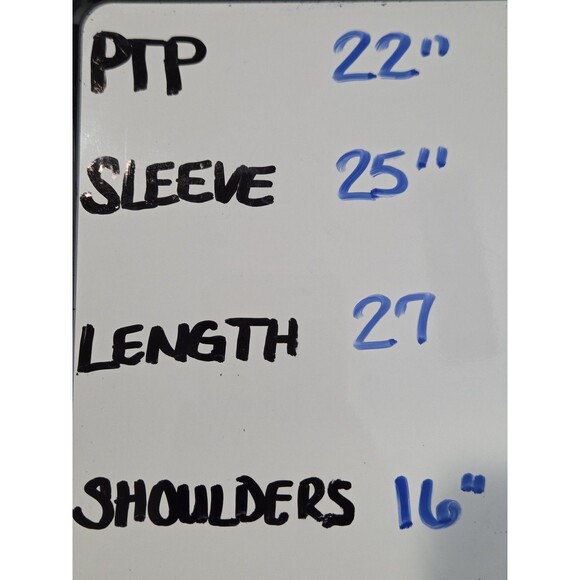 PTP 22"
SLEEVE 25"
LENGTH 27
SHOULDERS 16"